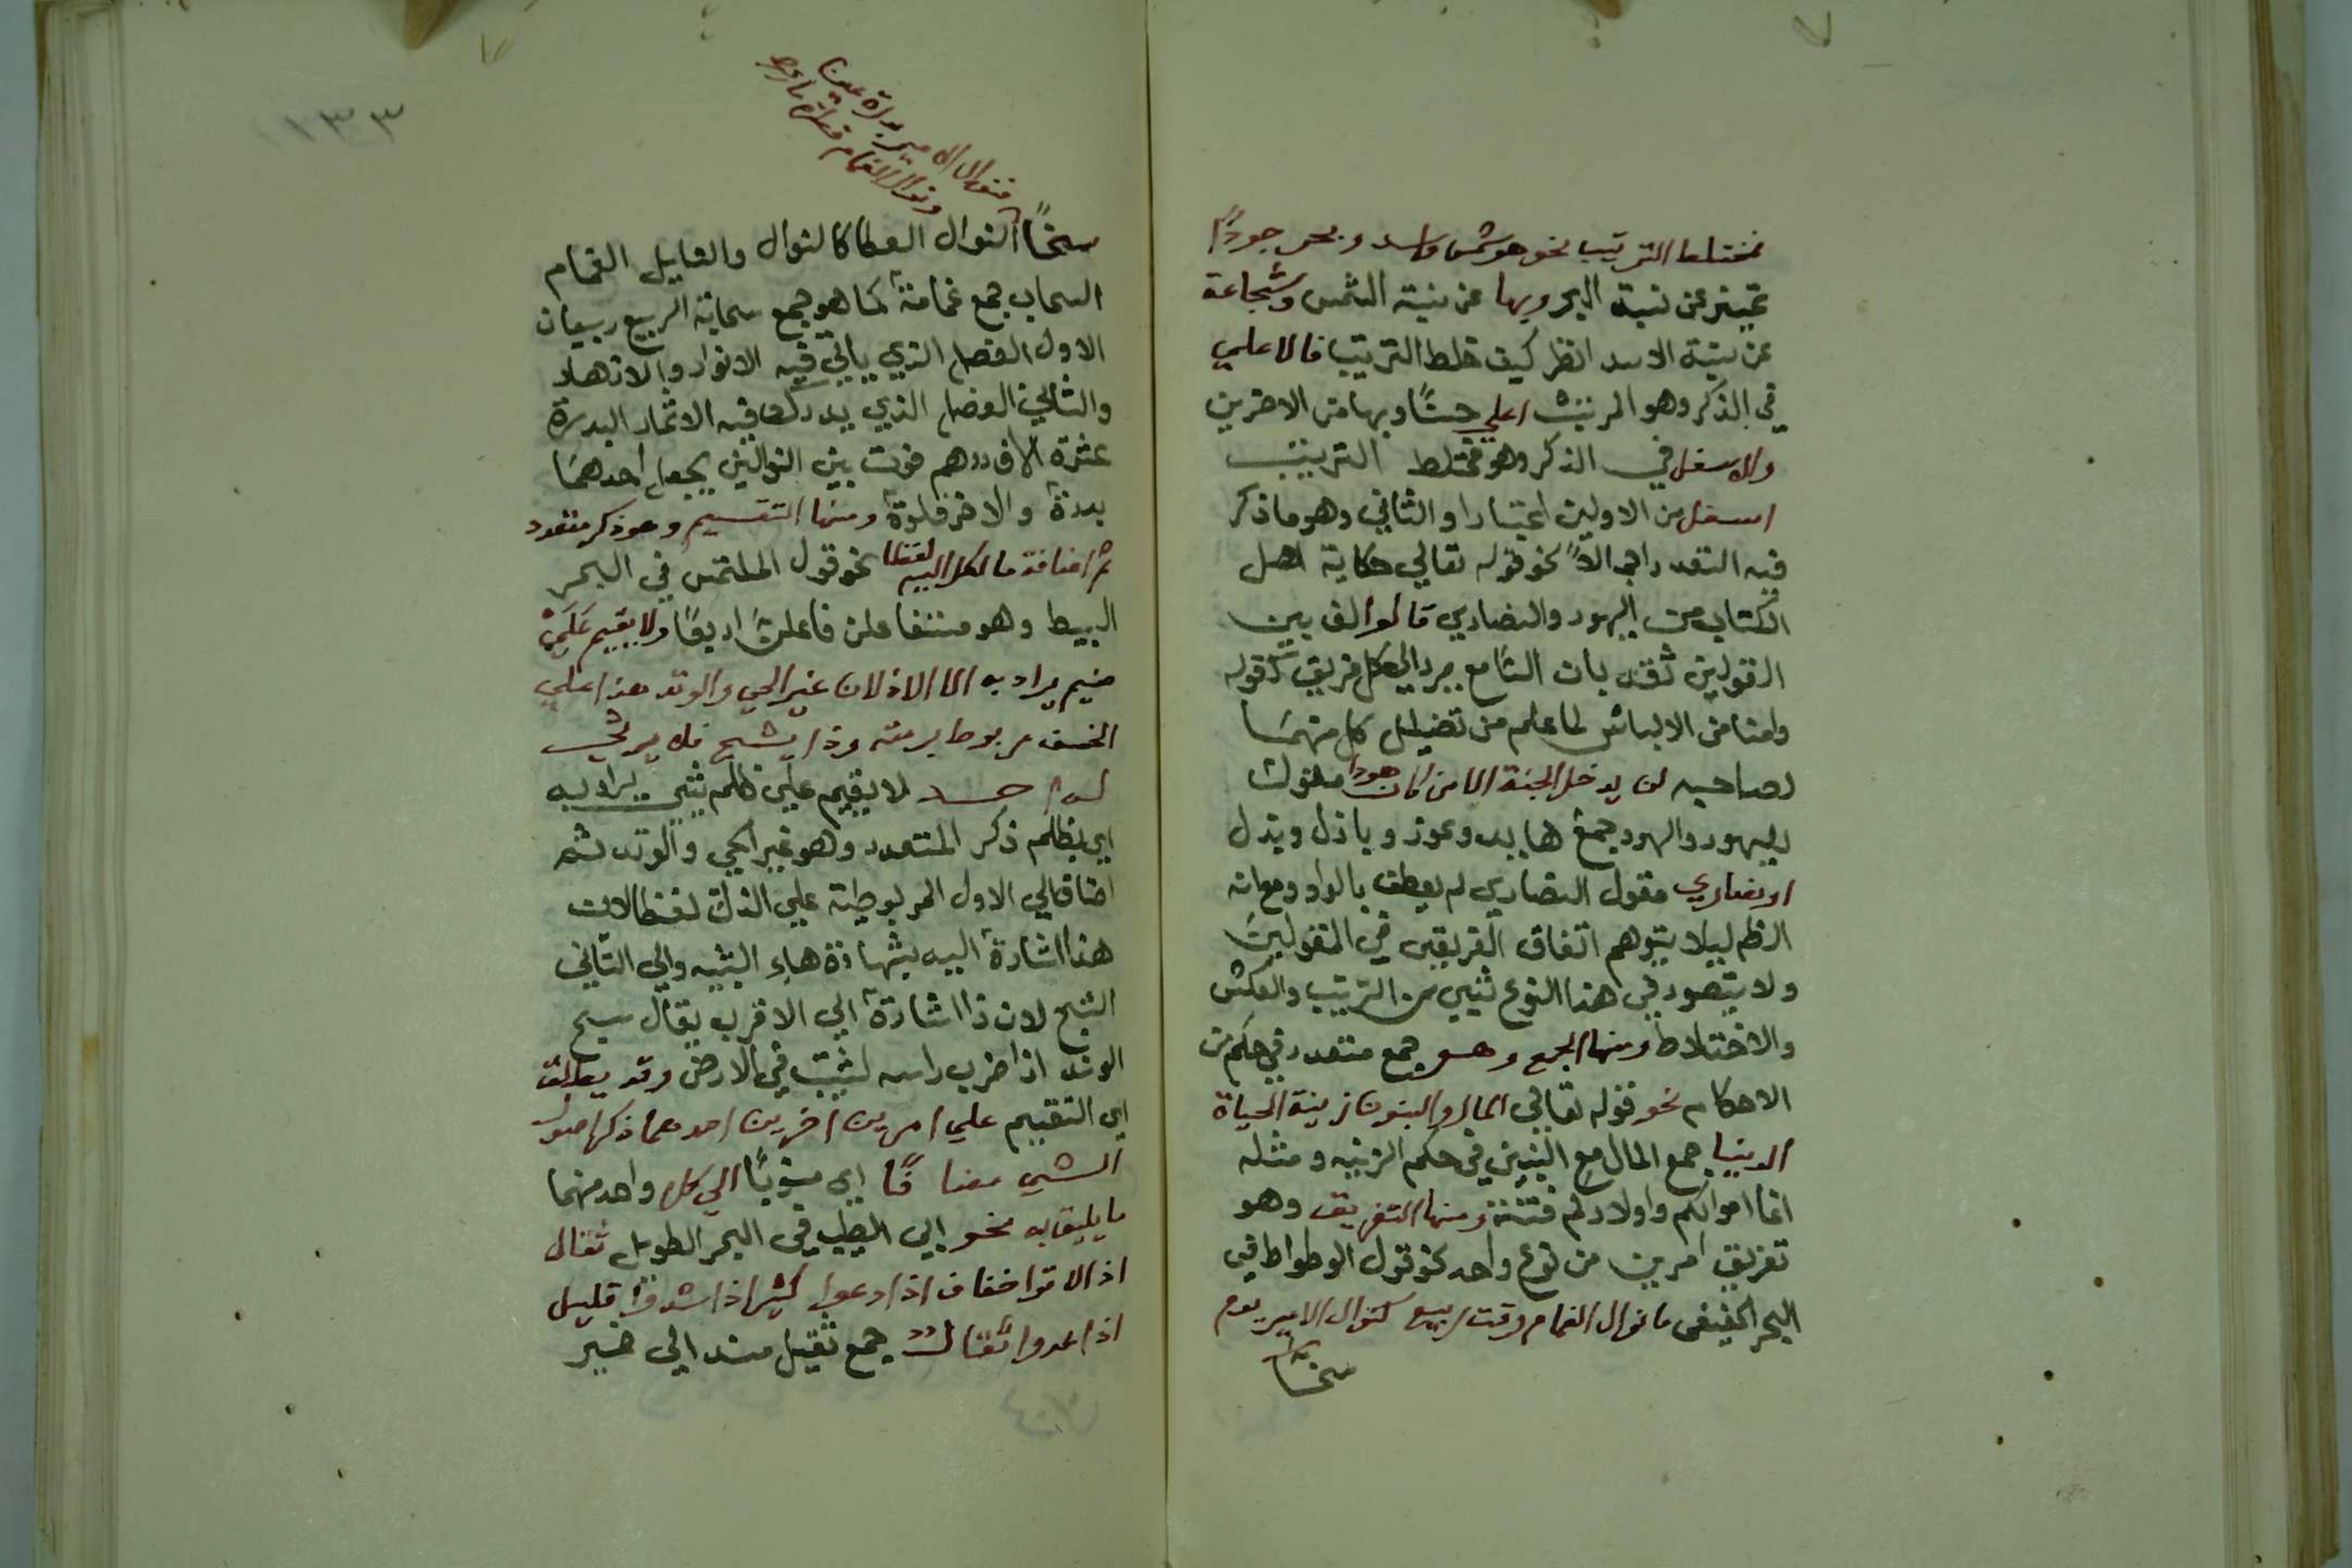 مختلط الترتيب نحو هو شمس واسد وبحر جودًا
تمييز عن نسبة البحر وبها عن نسبة الشمس وشجاعة
عن نسبة الاسد انظر كيف خلط الترتيب فالاعلي
في الذكر وهو المرتب اعلي حسًا وبها من الاخرين
والاسفل في الذكر وهو مختلط الترتيب
اسفل من الاولين اعتبارا والثاني وهو ما ذكر
فيه التعدد اجمالاً نحو قوله تعالي حكاية اهل
الكتاب من اليهود والنصاري قالوا لف بين
القولين ثقة بان السامع يرد الي كل فريق قوله
وامنا من الالباس لما علم من تضليل كل منهما
لصاحبه لن يدخل الجنة الا من كان هودا مقول
اليهود والهود جمع هايد وعوذ وباذل وبذل
او نصاري مقول النصاري لم يعطف بالواو ومع انه
الظم ليلا يتوهم اتفاق الفريقين في المقولين
ولا يتصور في هذا النوع شي من الترتيب والعكس
والاختلاط ومنها الجمع وهو جمع متعدد في حكم من
الاحكام نحو قوله تعالي المال والبنون زينة الحياة
الدنيا جمع المال مع البنين في حكم الزينه ومثله
انما اموالكم واولادكم فتنة ومنها التفريق وهو
تفريق امرين من نوع واحد نحو قول الوطواط في
البحر الخفيف ما نوال الغمام وقت ربيع كنوال الامير يوم
سخا
فنوال الامير بدرة عين
ونوال الغمام قطرة ماء
سخاً النوال العطا كالنوال والنايل الغمام
السحاب جمع غمامة كما هو جمع سحابة الربيع ربيعان
الاول الفصل الذي ياتي فيه الانوار والازهار
والثاني الفصل الذي يدرك فيه الاثمار البدرة
عشرة الاف درهم فرق بين النوالين بجعل احدهما
بدرة والاخر قطرة ومنها التقسيم وهو ذكر متعدد
ثم اضافة ما لكل اليه لفظا نحو قول الملتمس في البحر
البسيط وهو مستفعلن فاعلن اربعًا ولا يقيم علي
ضيم يراد به الا الاذلان عير الحي والوتد هذا علي
الخسف مربوط برمته وذا يشج فلا يرثي
له احد لا يقيم علي ظلم شي يراد به
اي بظلم ذكر المتعدد وهو عير الحي والوتد ثم
اضاف الي الاول المربوطية علي الذل لفظا لان
هذا اشارة اليه بشهادة هاء التنبيه والي الثاني
الشج لان ذا اشارة الي الاقرب يقال شج
الوتد اذا ضرب راسه ليثبت في الارض وقد يطلق
اي التقسيم علي امرين اخرين احدهما ذكر احوال
الشي مضافًا اي منسوبًا الي كل واحد منهما
ما يليق به نحو ابي الطيب في البحر الطويل ثقال
اذا لاقوا خفاف اذا دعوا كثير اذا شدوا قليل
اذا عدوا ثقال جمع ثقيل مسند الي ضمير
١٣٣